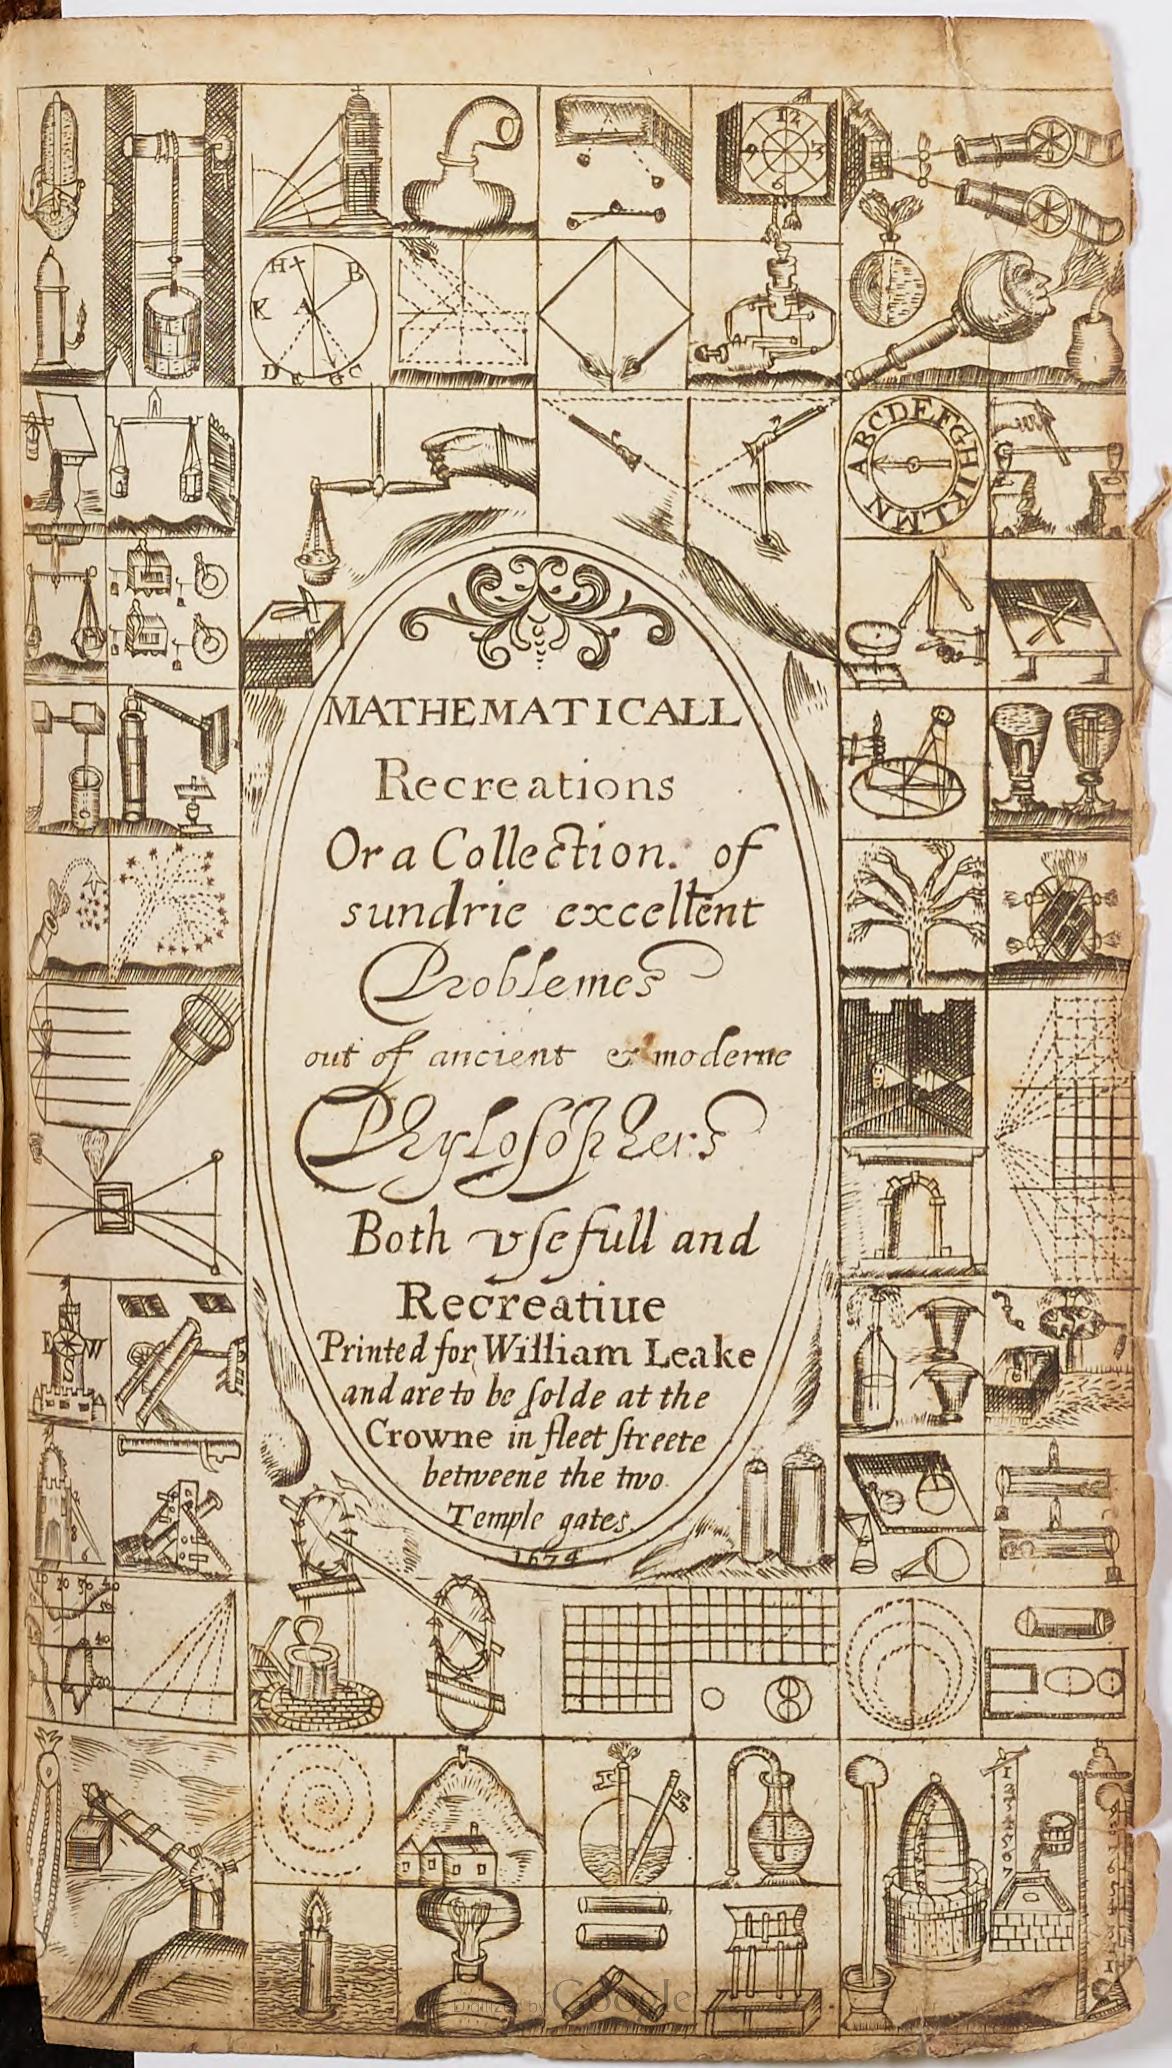 12
9
3
6
H
B
K
A
D
E
G
C
ABCDEFGHIKLMN
MATHEMATICALL
Recreations
Or a Collection. of
sundrie excellent
Problemes
out of ancient & moderne
Phylosophers
Both vsefull and
Recreatiue
Printed for William Leake
and are to be solde at the
Crowne in fleet streete
betweene the two
Temple gates.
1674
E
W
S
20
30
40
Digitized by Google